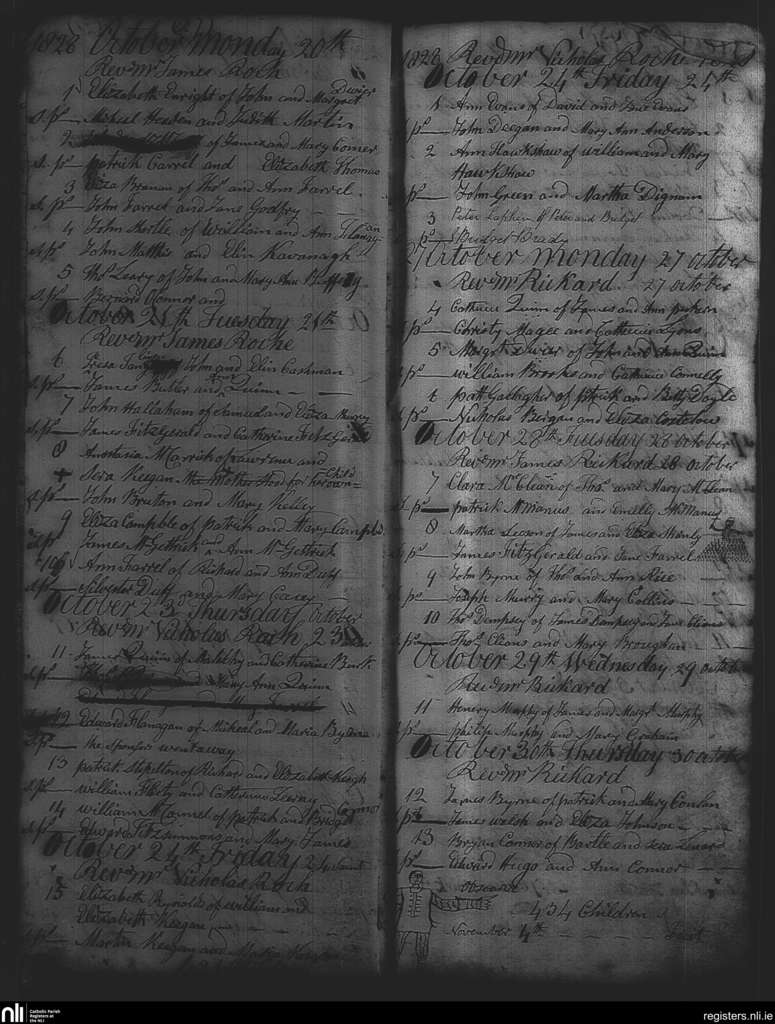 1828 October Monday 20th
Revd mr James Roch
1 Elizabeth Enright of John and Margret Dwier
s.ps Micheal Headen and Judith Martin
2 of James and Mary Comer
s.ps patrick Carrel and Elizabeth Thomas
3 Eliza Branan of Thos and Ann Farrel
s.ps John Farrel and Jane Godfry
4 John Hertle of William and Ann
s.ps John Matthis and Elin Kavanagh
5 Thos Leary of John and Mary Ann
s.ps Bernard OConnor and
October 21th Tuesday 21th
Revd mr James Roche
6 John and Elin Cashman
s.ps James Butler and Quinn
7 John Hallaham of Samuel and Eliza
s.ps James FitzGerald and Catherine FitzGerald
8 Anastasia of Lawrence and
Sera Keegan the Mother Stod for her own Child
s.ps John Bruton and Mary Kelley
9 Eliza Campble of patrick and Mary Campbl
s.ps James McGettrick and Ann McGettrick
10 Ann Farrel of Richard and Ann Duff
s.ps Silvester Duff and Mary Casey
October 23d Thursday October
Revd mr Nicholas Roch 23
11 James Quinn of Malachy and Catherine Burk
s.ps Mary Ann Quinn
12 Edward Flanagan of Micheal and Maria Byrne
s.ps the Sponsers went away
13 patrick Stapelton of Richard and Elizabeth Keogh
s.ps William and Catherine Learay
14 william McConnel of patrick and Bridget Connor
s.ps Edward Fitzsimmons and Mary James
October 24th Friday 24
Revd mr Nicholas Roch
15 Elizabeth Rynolds of william and
Elizabeth Keegan
s.ps Martin Keegan and Maria
1828 Revd mr Nicholas Roche
October 24th Friday 24th
1 Ann Evans of David and Evans
s.ps John Deegan and Mary Ann Anderson
2 Ann Hawkshaw of william and Mary
Hawkshaw
s.ps John Green and Martha Dignam
3 Peter of Peter and Bridget
s.ps Bridget Brady
27 October Monday 27 october
Revd mr Rickard 27 october
4 Catherine Quinn of James and Ann
s.ps Christy Magee and Catherine Lyons
5 Margrt Dwier of John and Ann Quinn
s.ps william Brooks and Catherine Connelly
6 patt Gallagher of patrick and Betty Doyle
s.ps Nicholas Bergan and Eliza Costelow
October 28th Tuesday 28 october
Revd mr James Rickard 28 october
7 Clara McClean of Thos and Mary McLean
s.ps patrick McManus and Emelly McManus
8 Martha Leeson of James and Eliza
s.ps James FitzGerald and Jane Farrel
9 John Byrne of Thos and Ann Rice
s.ps Joseph Murry and Mary Collins
10 Thos Dempsey of James Dempsey and Jane Cleans
s.ps Thos Cleans and Mary Broughan
October 29th Wednesday 29 october
Revd mr Rickard
11 Henery Murphy of James and Margrt Murphy
s.ps philip Murphy and Mary Graham
October 30th Thursday 30 octob
Revd mr Rickard
12 James Byrne of patrick and Mary Conlan
s.ps James welsh and Eliza Johnson
13 Bryan Connor of Bartle and Sera
s.ps Edward Hugo and Ann Connor
Observe
434 Children
November 4th Last
nli
Catholic Parish
Registers at
the NLI
registers.nli.ie